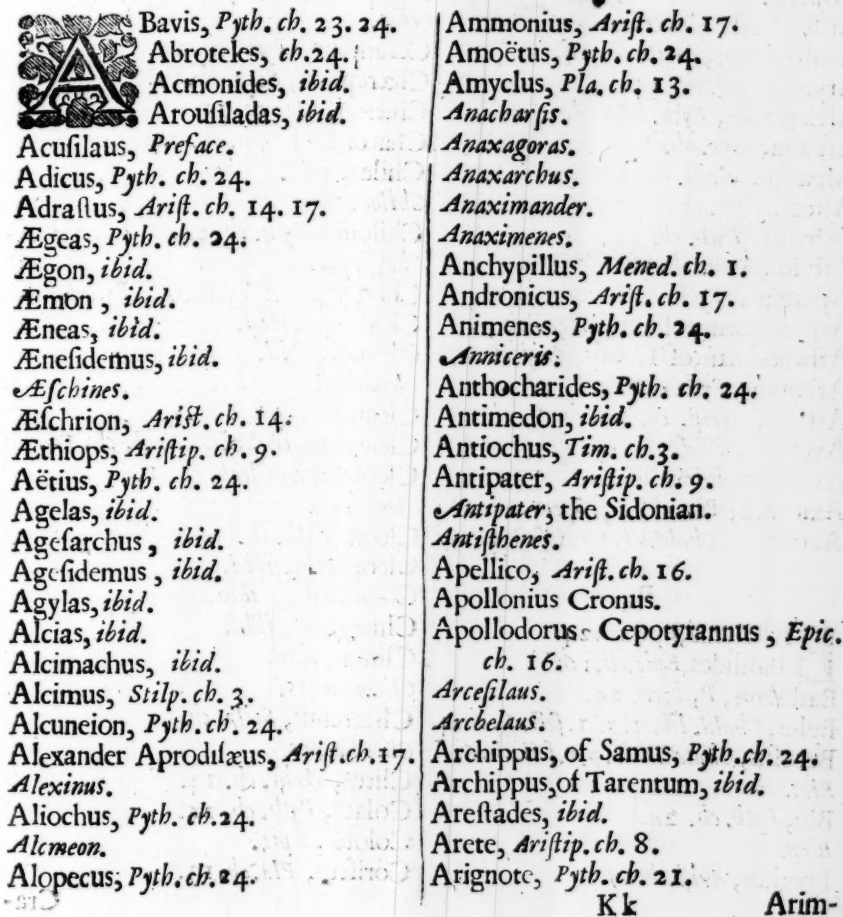 ABavis, Pyth. ch. 23. 24.
Abroteles, ch. 24.
Acmonides, ibid.
Arouſiladas, ibid.
Acuſilaus, Preface.
Adicus, Pyth. ch. 24.
Adraſtus, Ariſt. ch. 14. 17.
Ægeas, Pyth. ch. 24.
Ægon, ibid.
Æmon, ibid.
Æneas, ibid.
Æneſidemus, ibid.
Æſchines.
Æſchrion, Ariſt. ch. 14.
Æthiops, Ariſtip. ch. 9.
Aëtius, Pyth. ch. 24.
Agelas, ibid.
Ageſarchus, ibid.
Ageſidemus, ibid.
Agylas, ibid.
Alcias, ibid.
Alcimachus, ibid.
Alcimus, Stilp. ch. 3.
Alcuneion, Pyth. ch. 24.
Alexander Aprodiſæus, Ariſt. ch. 17.
Alexinus.
Aliochus, Pyth. ch. 24.
Alcmeon.
Alopecus, Pyth. ch. 24.
Ammonius, Ariſt. ch. 17.
Amoëtus, Pyth. ch. 24.
Amyclus, Pla. ch. 13.
Anacharſis.
Anaxagoras.
Anaxarchus.
Anaximander.
Anaximenes.
Anchypillus, Mened. ch. 1.
Andronicus, Ariſt. ch. 17.
Animenes, Pyth. ch. 24.
Anniceris.
Anthocharides, Pyth. ch. 24.
Antimedon, ibid.
Antiochus, Tim. ch. 3.
Antipater, Ariſtip. ch. 9.
Antipater, the Sidonian.
Antiſthenes.
Apellico, Ariſt. ch. 16.
Apollonius Cronus.
Apollodorus Cepotyrannus, Epic.
ch. 16.
Arceſilaus.
Archelaus.
Archippus, of Samus, Pyth. ch. 24.
Archippus, of Tarentum, ibid.
Areſtades, ibid.
Arete, Ariſtip. ch. 8.
Arignote, Pyth. ch. 21.
Kk Arim-